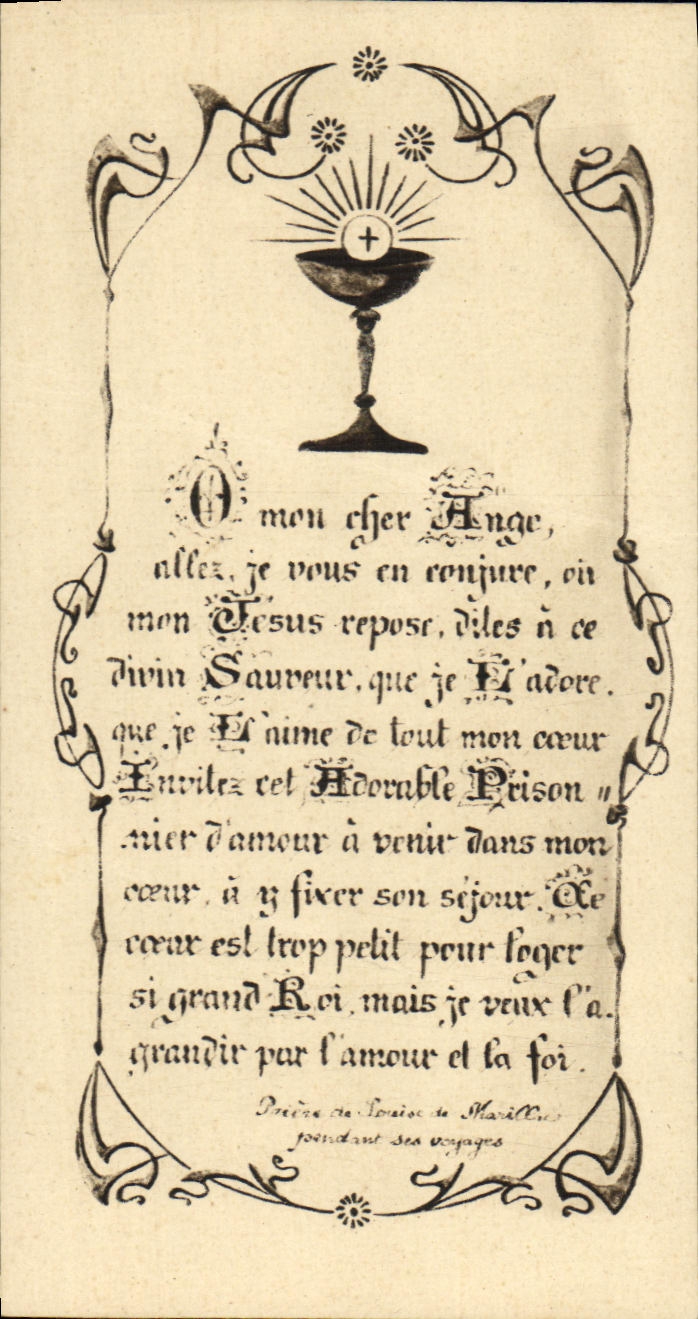 O mon cher Ange,
allez, je vous en conjure, où
mon Jésus repose, dites à ce
divin Sauveur, que je L'adore,
que je L'aime de tout mon cœur
Invitez cet Adorable Prison "
nier d'amour à venir dans mon
cœur, à y fixer son séjour. Ce
cœur est trop petit pour loger
si grand Roi, mais je veux l'a.
grandir par l'amour et la foi.
Prière de Louise de Marillac
pendant ses voyages